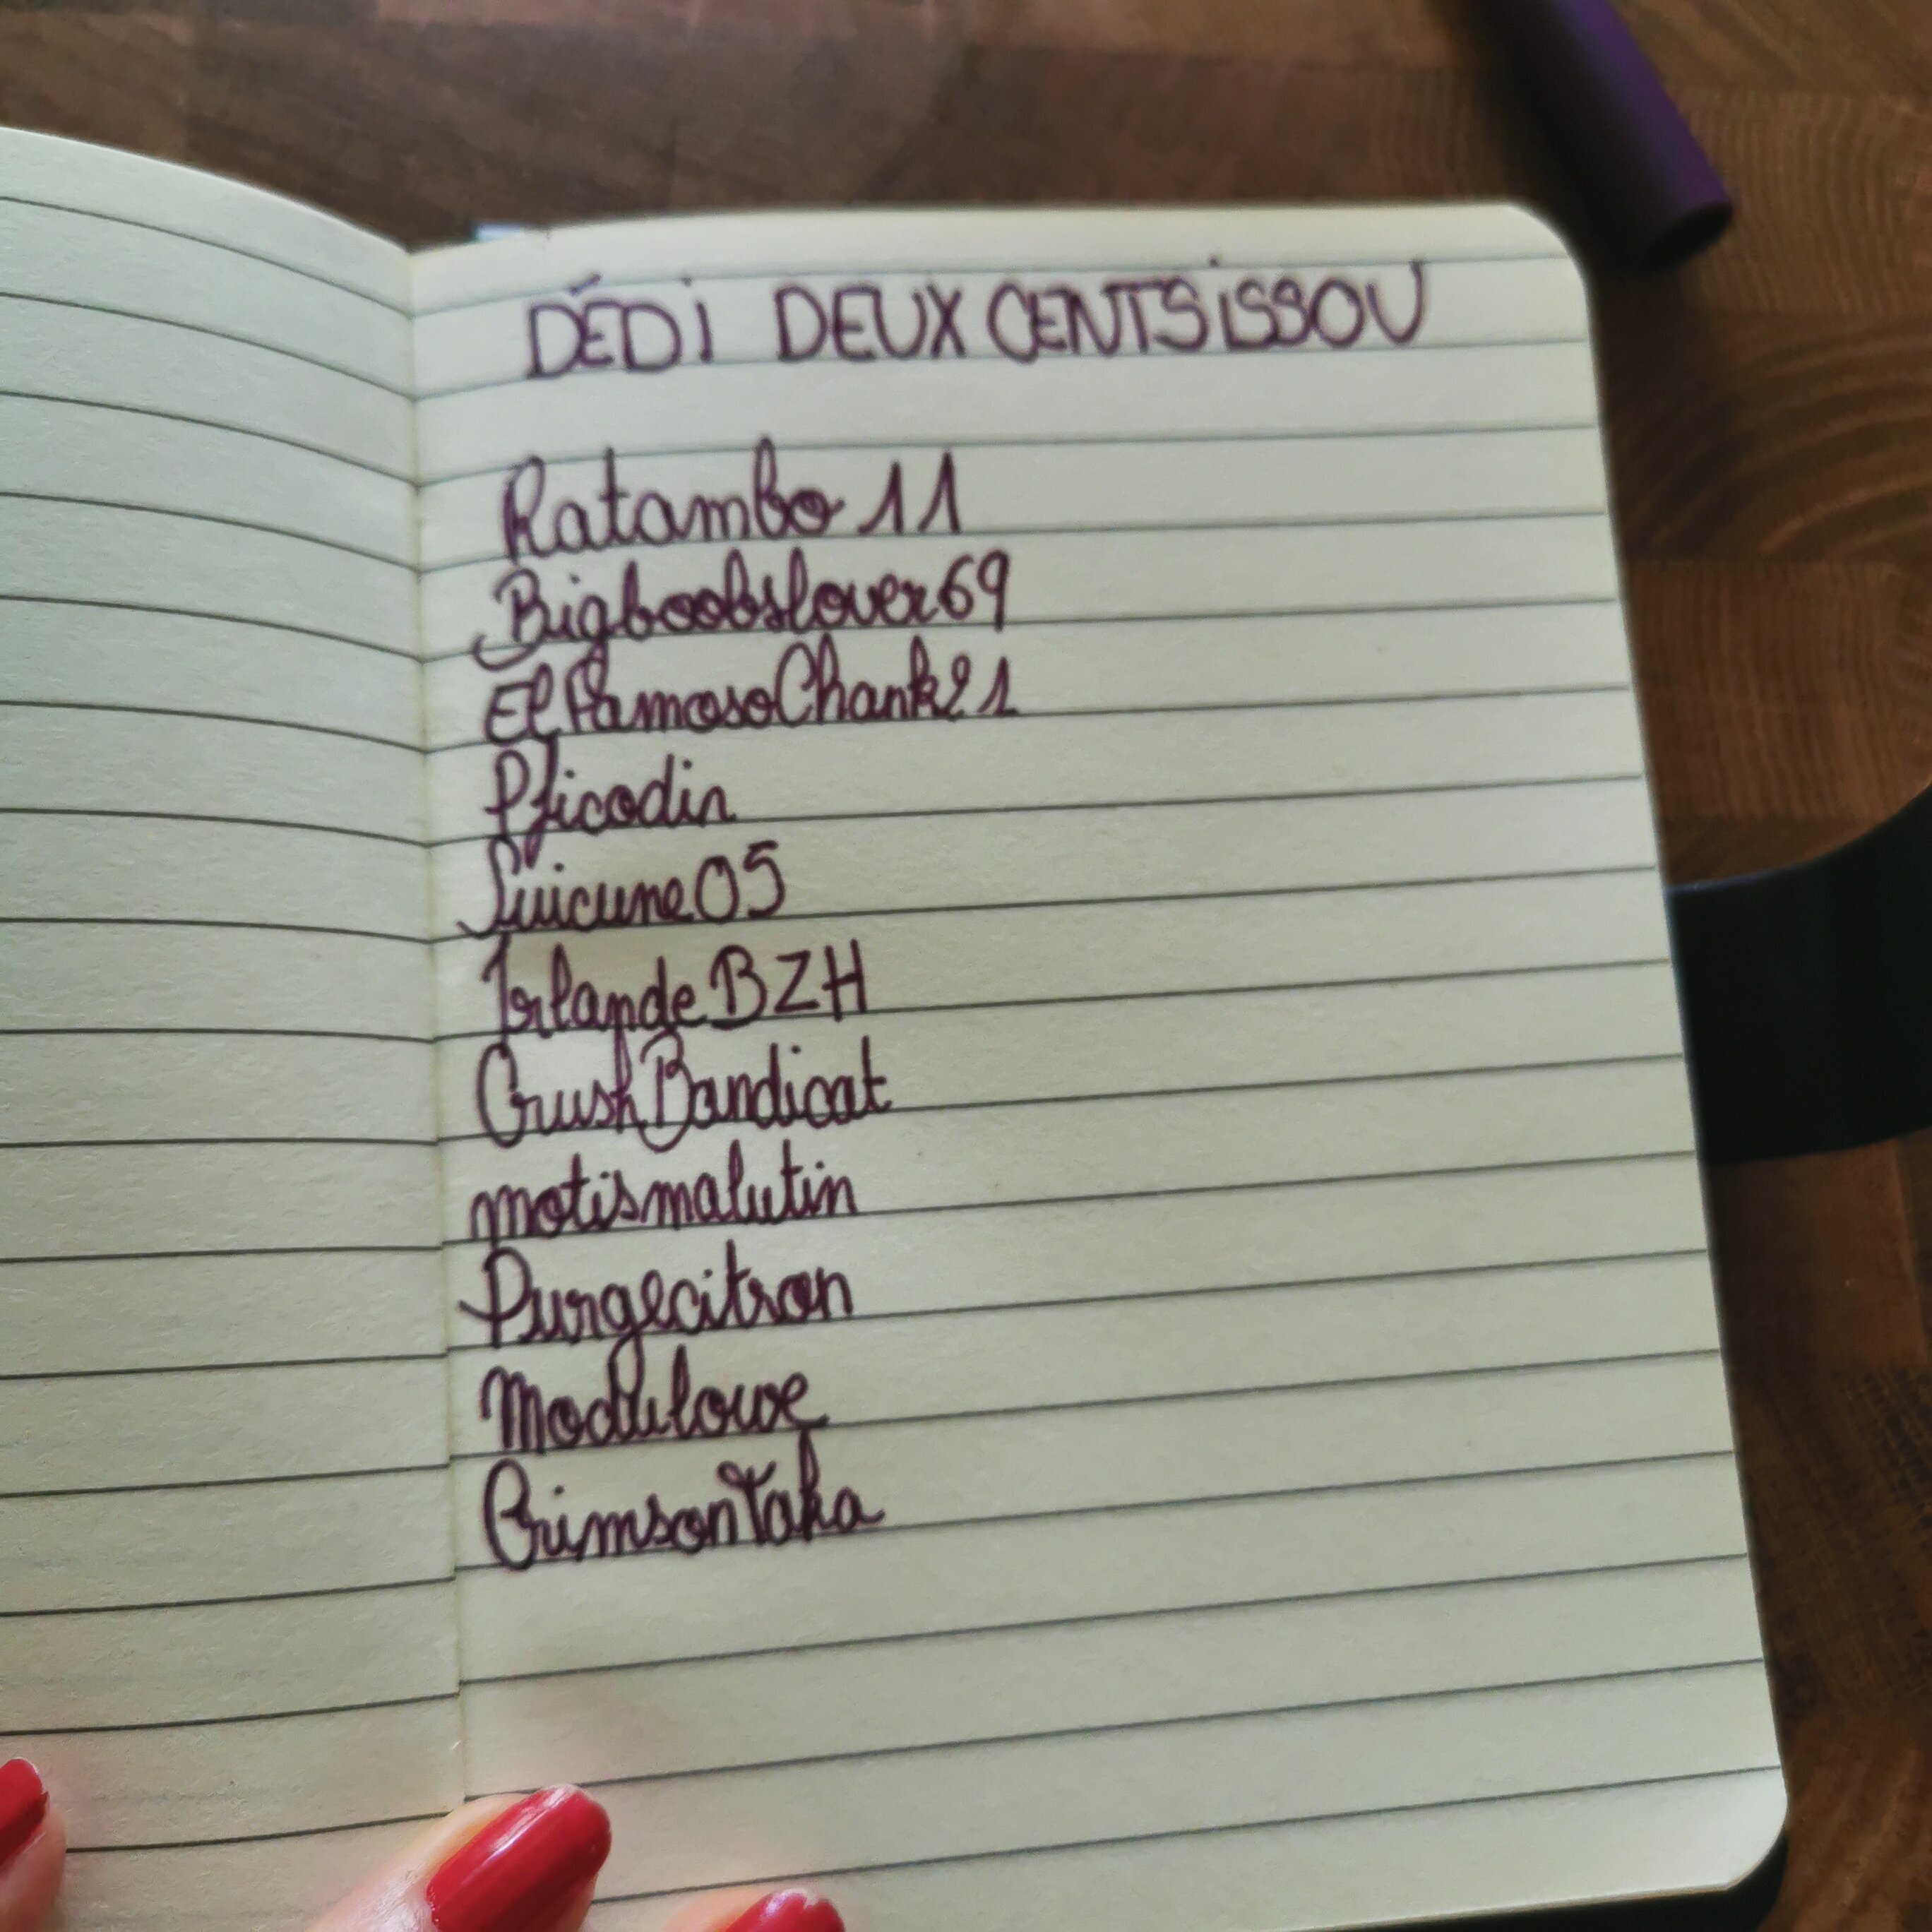 DÉDi DEUXCENTSiSSOU
Ratambo11
Bigboobslover69
ElFamosoChank21
Pficodin
Suicune05
IrlandeBZH
CrushBandicat
motismalutin
Purgecitron
Moduloüe
CrimsonTaka